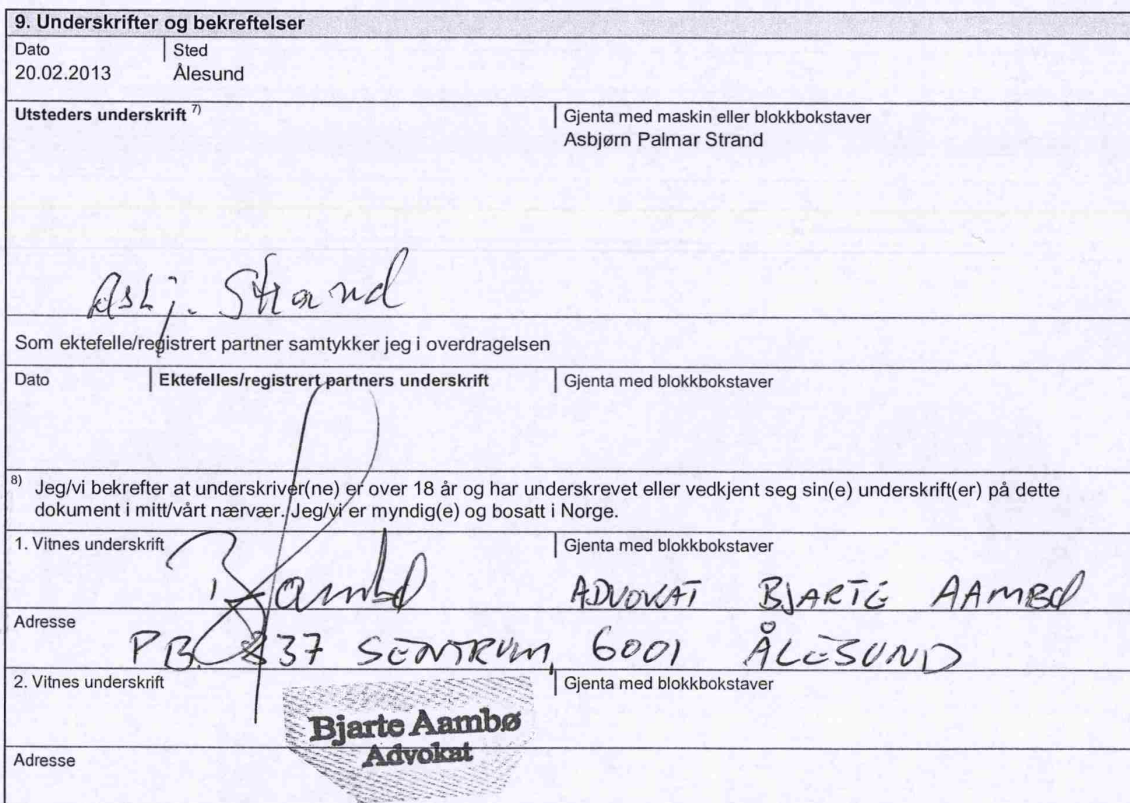 9. Underskrifter og bekreftelser
Dato Sted
20.02.2013 Ålesund
Utsteders underskrift 7) Gjenta med maskin eller blokkbokstaver
Asbjørn Palmar Strand
Asbj. Strand
Som ektefelle/registrert partner samtykker jeg i overdragelsen
Dato Ektefelles/registrert partners underskrift Gjenta med blokkbokstaver
8) Jeg/vi bekrefter at underskriver(ne) er over 18 år og har underskrevet eller vedkjent seg sin(e) underskrift(er) på dette
dokument i mitt/vårt nærvær. Jeg/vi er myndig(e) og bosatt i Norge.
1. Vitnes underskrift Gjenta med blokkbokstaver
ADVOKAT BJARTE AAMBØ
Adresse
PB. 837 SENTRUM, 6001 ÅLESUND
2. Vitnes underskrift Gjenta med blokkbokstaver
Bjarte Aambø
Advokat
Adresse